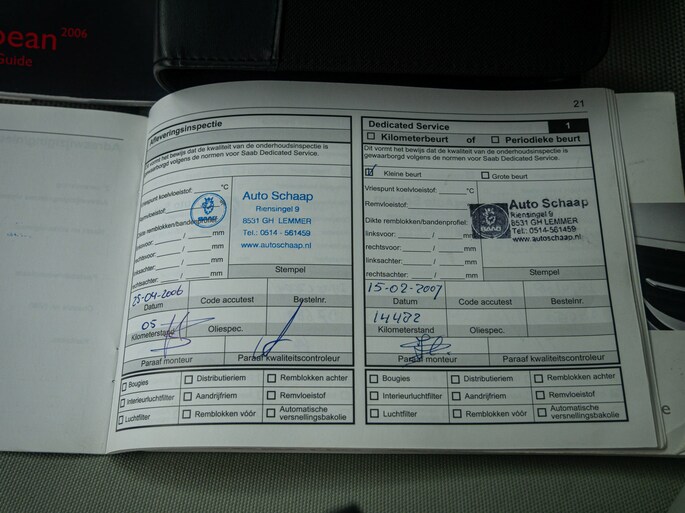 pean 2006
Guide
21
Afleveringsinspectie
Dit vormt het bewijs dat de kwaliteit van de onderhoudsinspectie is
gewaarborgd volgens de normen voor Saab Dedicated Service.
Vriespunt koelvloeistof: °C
Remvloeistof:
Dikte remblokken/bandenprofiel:
linksvoor: / mm
rechtsvoor: / mm
linksachter: / mm
rechtsachter: / mm
SAAB
Auto Schaap
Riensingel 9
8531 GH LEMMER
Tel.: 0514 - 561459
www.autoschaap.nl
Stempel
25-04-2006
Datum
Code accutest
Bestelnr.
05
Kilometerstand
Oliespec.
Paraaf monteur
Paraaf kwaliteitscontroleur
Bougies
Distributieriem
Remblokken achter
Interieurluchtfilter
Aandrijfriem
Remvloeistof
Luchtfilter
Remblokken vóór
Automatische
versnellingsbakolie
Dedicated Service 1
Kilometerbeurt of Periodieke beurt
Dit vormt het bewijs dat de kwaliteit van de onderhoudsinspectie is
gewaarborgd volgens de normen voor Saab Dedicated Service.
Kleine beurt
Grote beurt
Vriespunt koelvloeistof: °C
Remvloeistof:
Dikte remblokken/bandenprofiel:
linksvoor: / mm
rechtsvoor: / mm
linksachter: / mm
rechtsachter: / mm
SAAB
Auto Schaap
Riensingel 9
8531 GH LEMMER
Tel.: 0514 - 561459
www.autoschaap.nl
Stempel
15-02-2007
Datum
Code accutest
Bestelnr.
14482
Kilometerstand
Oliespec.
Paraaf monteur
Paraaf kwaliteitscontroleur
Bougies
Distributieriem
Remblokken achter
Interieurluchtfilter
Aandrijfriem
Remvloeistof
Luchtfilter
Remblokken vóór
Automatische
versnellingsbakolie
e